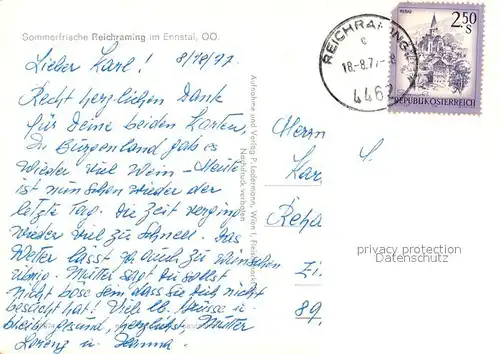 Sommerfrische Reichraming im Ennstal, OÖ.
Lieber Karl! 8/18/77
Recht herzlichen Dank
für Deine beiden Karten,
Im Burgenland gab es
wieder viel Wein – Heute
ist nun schon wieder der
letzte Tag. Die Zeit verging
wieder viel zu schnell. Das
Wetter lässt auch zu wünschen
übrig. Mutter sagt Du sollst
nicht böse sein dass sie Dich nicht
besucht hat! Viele lb. Grüsse u.
bleib gesund, herzlichst Mutter
Lorenz u. Hanna.
Aufnahme und Verlag P. Ledermann, Wien I,
Nachdruck verboten
REICHRAMING
c
18.-8.77-8
4462
2.50 S
REPUBLIK ÖSTERREICH
Herrn
Kar
Reha
Zi.
89,
privacy protection
Datenschutz